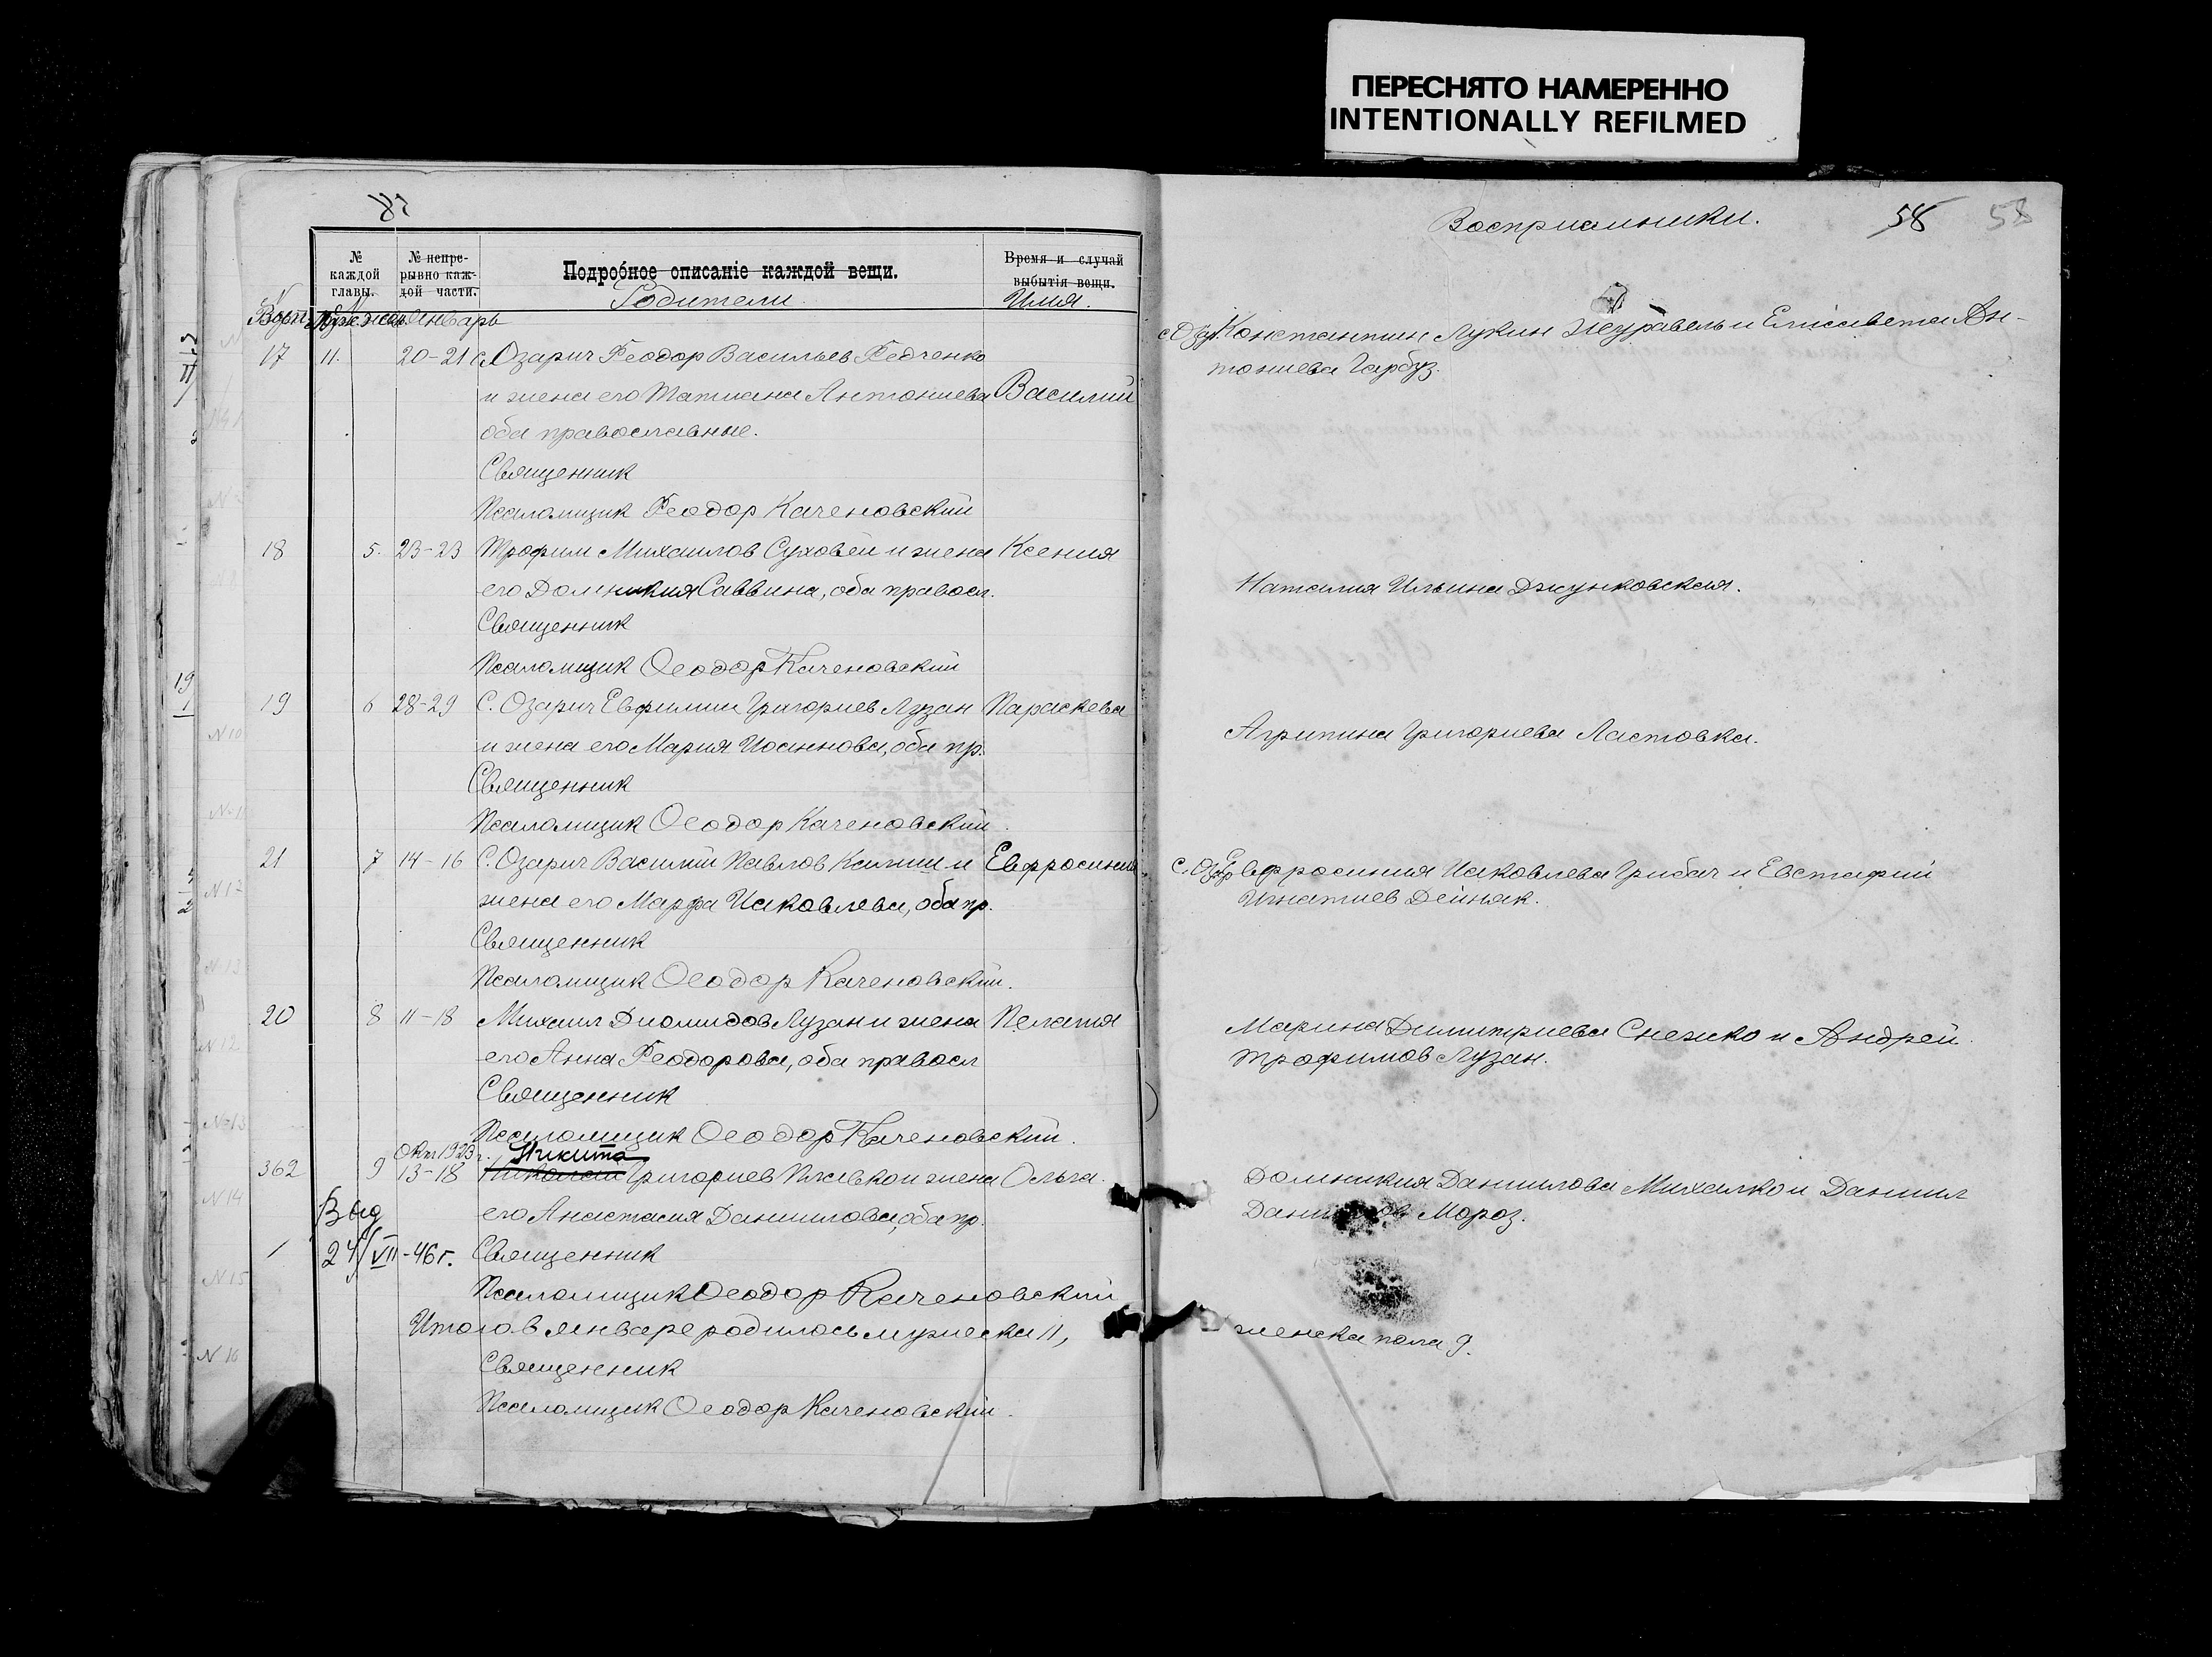 ПЕРЕСНЯТО НАМЕРЕННО
INTENTIONALLY REFILMED
№ каждой главы.
№ непре-рывно каж-дой части.
Подробное описаніе каждой вещи.
Время и случай выбытія вещи.
Родители.
Имя.
Январь
17 11. 20-21 с. Озарич Феодор Васильев Федченко
и жена его Татиана Антониева Василий
оба православные.
Священник
Псаломщик Феодор Каченовский
18 5. 23-23 Трофим Михаилов Суховей и жена Ксения
его Домникия Саввина, оба правосл.
Священник
Псаломщик Ѳеодор Каченовский
19 6 28-29 С. Озарич Евфимий Григориев Лузан Параскева
и жена его Мария Иоаннова, оба пр.
Священник
Псаломщик Ѳеодор Каченовский.
21 7 14-16 С. Озарич Василий Павлов и Евфросиния
жена его Марфа Иаковлева, оба пр.
Священник
Псаломщик Ѳеодор Каченовский.
20 8 11-18 Михаил Диомидов Лузан и жена Пелагия
его Анна Феодорова, оба правосл
Священник
Псаломщик Ѳеодор Каченовский.
Окт 1923 г. Никита
362 9 13-18 Николай Григориев и жена Ольга.
его Анастасия Даниилова, оба пр.
Выд
24/VII-46 г. Священник
Псаломщик Ѳеодор Каченовский
Итого в январе родилось мужеска 11,
Священник
Псаломщик Ѳеодор Каченовский.
Восприемники. 58 58
с. Озар. Константин Лукин Журавель и Елисавета Ан-
тониева Гарбуз.
Наталия Ильина Джунковская.
Агрипина Григориева Ластовка.
с. Озар Евфросиния Иаковлева Грибач и Евстафий
Игнатиев Дейняк.
Марина Димитриева Снежко и Андрей
Трофимов Лузан.
Домникия Даниилова Михалко и Даниил
Мороз.
женска пола 9.